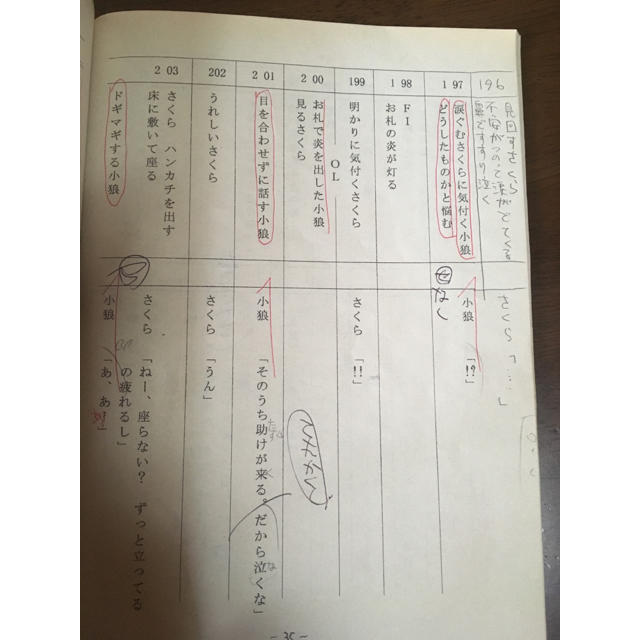 196
見回すさくら
不安がつのって涙がでてくる
声ですすり泣く
さくら「…」
197
涙ぐむさくらに気付く小狼
どうしたものかと悩む
小狼「!?」
なし
198
FI
お札の炎が灯る
199
明かりに気付くさくら
さくら「!!」
OL
200
お札で炎を出した小狼
見るさくら
201
目を合わせずに話す小狼
小狼「そのうち助けが来る。だから泣くな」
202
うれしいさくら
さくら「うん」
203
さくら ハンカチを出す
床に敷いて座る
さくら「ねー、座らない? ずっと立ってる
の疲れるし」
ドギマギする小狼
小狼「あ、あ」
- 35 -